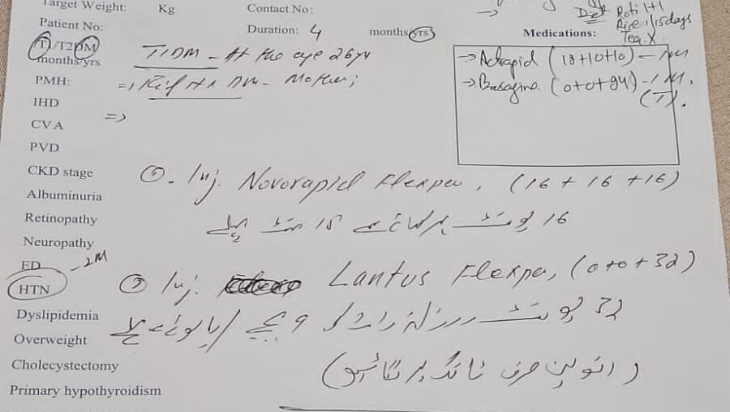 Target Weight: Kg Contact No:
Patient No: Duration: 4 months/yrs
Diet Roti 1+1
Rice 1/15days
Tea X
Medications:
T1/T2DM T1DM - At the age 26 yr
months/yrs
PMH: => H/ DM - Mother;
IHD
CVA =>
PVD
-> Actrapid (18+10+10) -
-> (0+0+24) - 1 M.
(T).
CKD stage
Albuminuria
Retinopathy
Neuropathy
ED - 2M
HTN
Dyslipidemia
Overweight
Cholecystectomy
Primary hypothyroidism
①. Inj. Novorapid Flexpen, (16 + 16 + 16)
16 یونٹ ہر کھانے سے 15 منٹ پہلے
② Inj. Lantus Flexpen, (0+0+32)
32 یونٹ روزانہ رات 9 بجے
(انسولین صرف ٹانگ پر لگائیں)